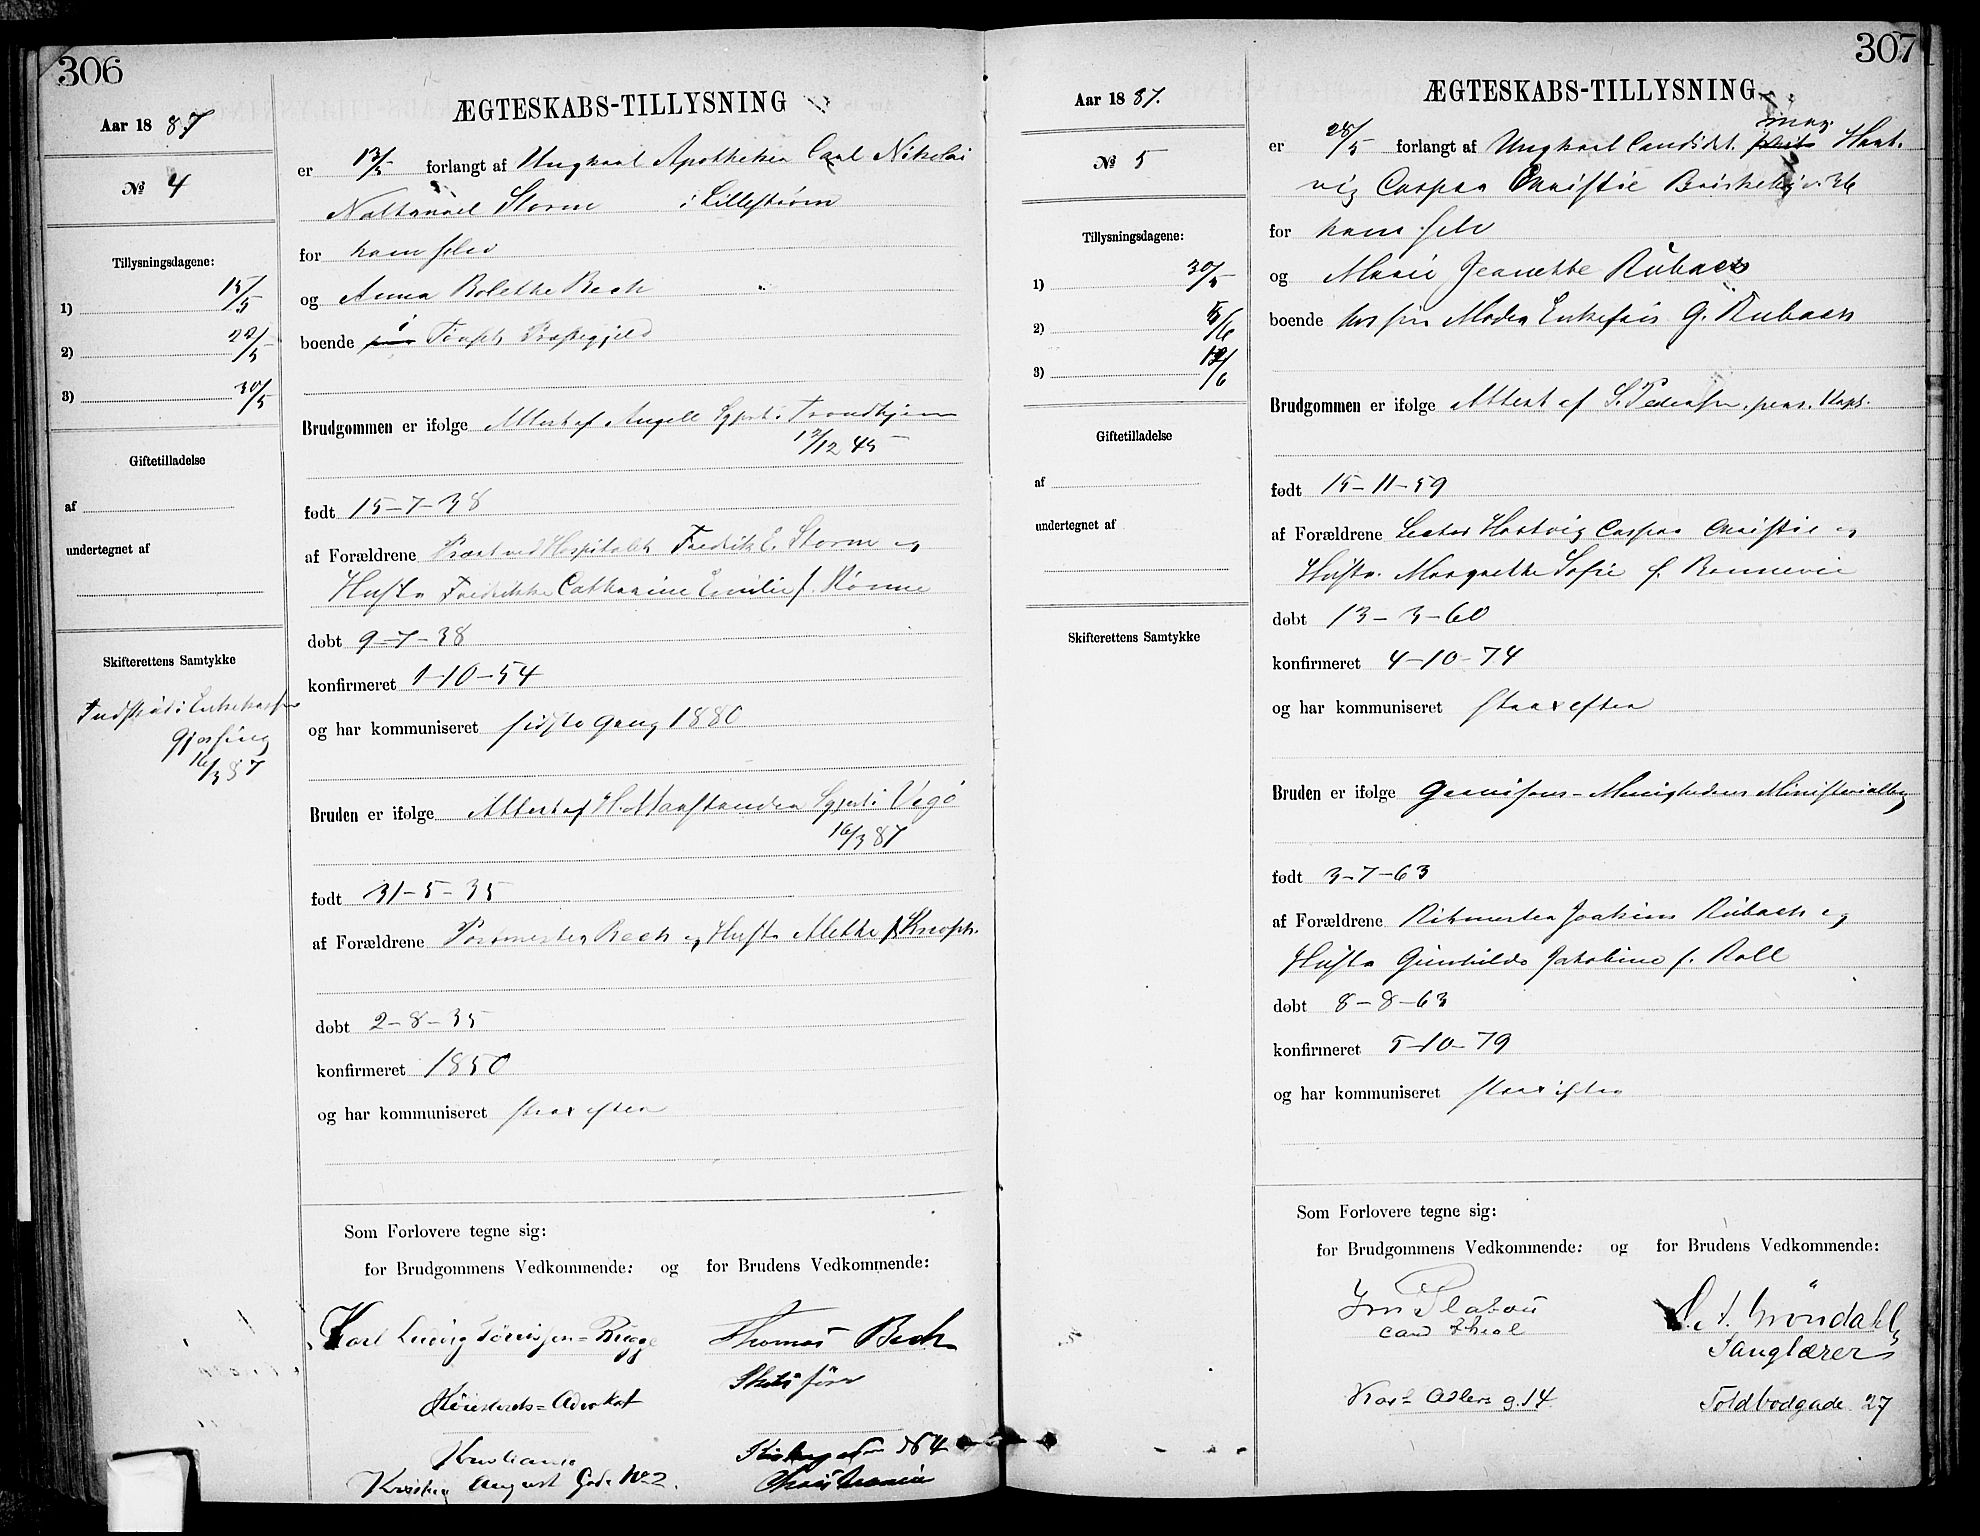 306
Aar 1887
№ 4
Tillysningsdagene:
1) 15/5
2) 22/5
3) 30/5
Giftetilladelse
af
undertegnet af
Skifterettens Samtykke
Indskud i Enkekassen
16/3 87
ÆGTESKABS-TILLYSNING
er 13/5 forlangt af Ungkarl Apotheker Carl Nikolai
Nathanael Storm i Lillestrøm
for ham selv
og Anna Bolethe Bech
boende i Præstegjeld
Brudgommen er ifølge Attest af Angell Sgprst i Trondhjem
12/12 45
født 15-7-38
af Forældrene Præst ved Hospitalet Fredrik E. Storm og
Hustr Fredrikke Catharine Emilie f. Rønne
døbt 9-7-38
konfirmeret 1-10-54
og har kommuniseret sidste Gang 1880
Bruden er ifølge Attest af Sgprst i Vegø
16/3 87
født 31-5-35
af Forældrene Postmester Bech og Hustr Methe f.
døbt 2-8-35
konfirmeret 1850
og har kommuniseret strax efter
Som Forlovere tegne sig:
for Brudgommens Vedkommende: og for Brudens Vedkommende:
Karl Ludvig Tørrissen-Bugge Thomas Bech
Høiesterets-Advokat Skibsfører
Kristiania
Kristian August Gade No 2. Christiania
307
Aar 1887.
№ 5
Tillysningsdagene:
1) 30/5
2) 5/6
3) 12/6
Giftetilladelse
af
undertegnet af
Skifterettens Samtykke
ÆGTESKABS-TILLYSNING
min.
er 28/5 forlangt af Ungkarl Candidat Hart-
vig Caspar Christie Briskebyv. 36
for ham selv
og Marie Jeanette Rubach
boende hos sin Moder Enkefru G. Rubach
Brudgommen er ifølge Attest af S. Pedersen, pers. Kap.
født 15-11-59
af Forældrene Lector Hartvig Caspar Christie og
Hustr. Margrethe Sofie f. Bonnevie
døbt 13-3-60
konfirmeret 4-10-74
og har kommuniseret strax efter
Bruden er ifølge Garnisons-Menighedens Ministerialbog
født 3-7-63
af Forældrene Ritmester Joakim Rubach og
Hustr Gunhilde Jakobine f. Roll
døbt 8-8-63
konfirmeret 5-10-79
og har kommuniseret strax efter
Som Forlovere tegne sig:
for Brudgommens Vedkommende: og for Brudens Vedkommende:
Platou Gröndahl
cand theol Sanglærer
Karl Adlers g. 14 Toldbodgade 27